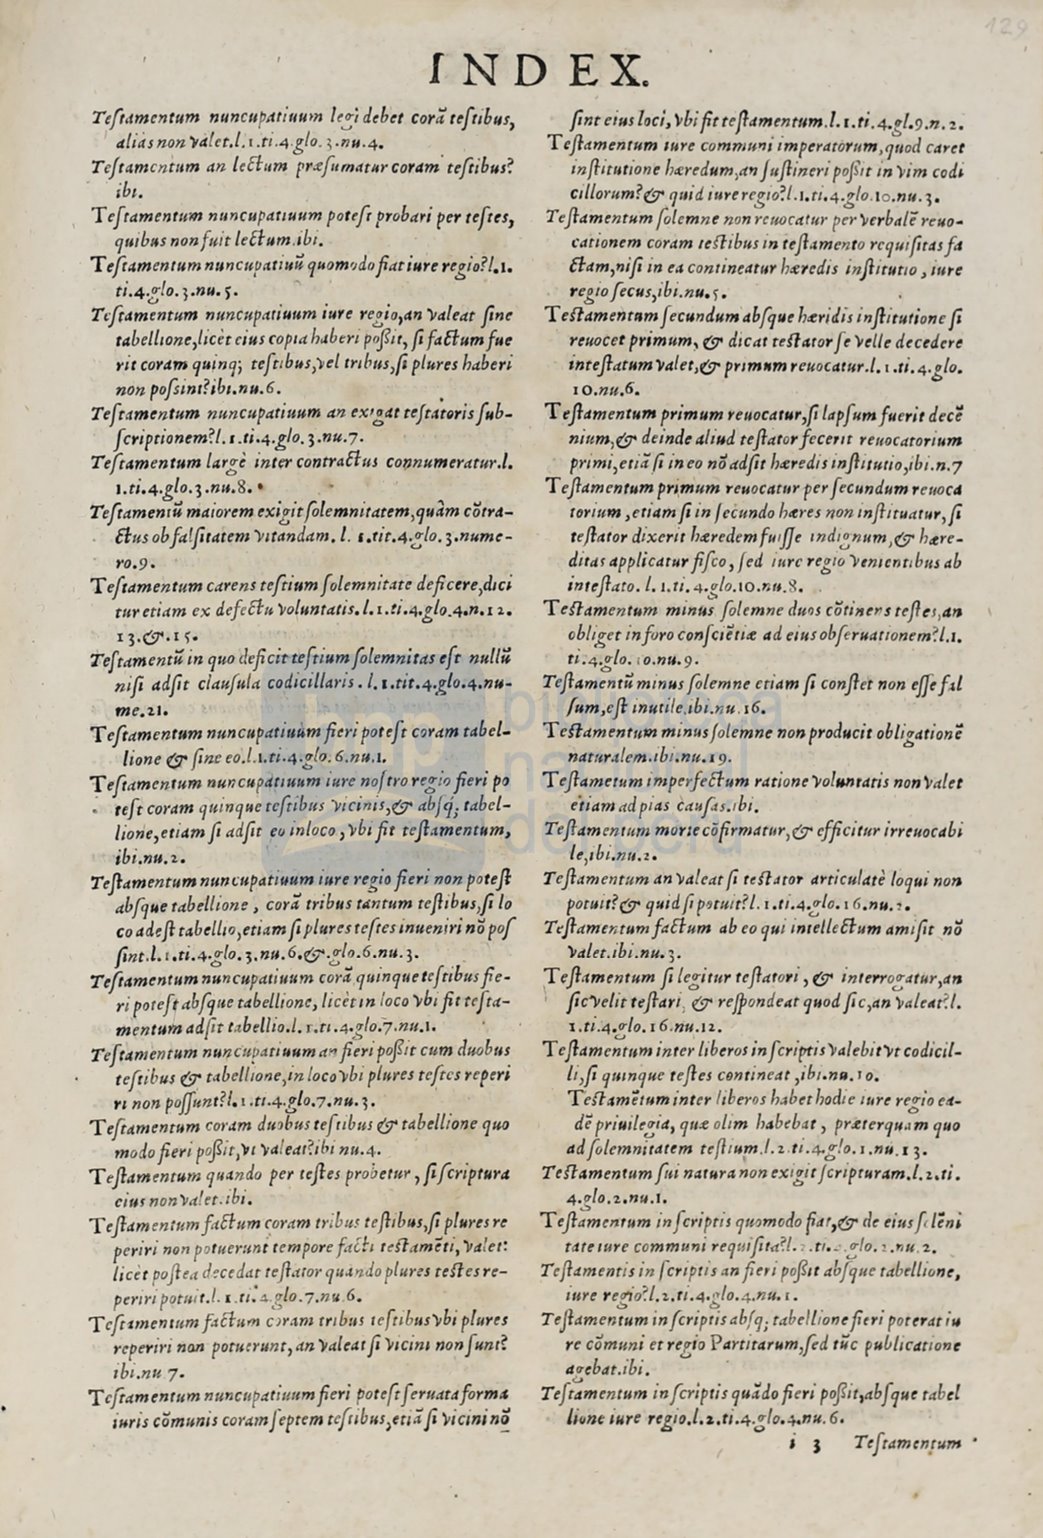 129
INDEX.
Teſtamentum nuncupatiuum legi debet corã teſtibus,
aliàs non valet.l.1.ti.4.glo.3.nu.4.
Teſtamentum an lectum præſumatur coram teſtibus?
ibi.
Teſtamentum nuncupatiuum poteſt probari per teſtes,
quibus non fuit lectum.ibi.
Teſtamentum nuncupatiuũ quomodo fiat iure regio?l.1.
ti.4.glo.3.nu.5.
Teſtamentum nuncupatiuum iure regio,an valeat ſine
tabellione,licèt eius copia haberi poßit, ſi factum fue
rit coram quinq; teſtibus,vel tribus,ſi plures haberi
non poſsint?ibi.nu.6.
Teſtamentum nuncupatiuum an exigat teſtatoris ſub-
ſcriptionem?l.1.ti.4.glo.3.nu.7.
Teſtamentum largè inter contractus connumeratur.l.
1.ti.4.glo.3.nu.8.
Teſtamentũ maiorem exigit ſolemnitatem,quàm cõtra-
ctus ob falſitatem vitandam. l. 1.tit.4.glo.3.nume-
ro.9.
Teſtamentum carens teſtium ſolemnitate deficere,dici
tur etiam ex defectu voluntatis.l.1.ti.4.glo.4.n.12.
13.&.15.
Teſtamentũ in quo deficit teſtium ſolemnitas eſt nullũ
niſi adſit clauſula codicillaris. l.1.tit.4.glo.4.nu-
me.21.
Teſtamentum nuncupatiuùm fieri poteſt coram tabel-
lione & ſine eo.l.1.ti.4.glo.6.nu.1.
Teſtamentum nuncupatiuum iure noſtro regio fieri po
teſt coram quinque teſtibus vicinis,& abſq; tabel-
lione,etiam ſi adſit eo in loco, vbi fit teſtamentum,
ibi.nu.2.
Teſtamentum nuncupatiuum iure regio fieri non poteſt
abſque tabellione, corã tribus tantum teſtibus,ſi lo
co adeſt tabellio,etiam ſi plures teſtes inueniri nõ poſ
ſint.l.1.ti.4.glo.3.nu.6.&.glo.6.nu.3.
Teſtamentum nuncupatiuum corã quinque teſtibus fie-
ri poteſt abſque tabellione, licèt in loco vbi fit teſta-
mentum adſit tabellio.l.1.ti.4.glo.7.nu.1.
Teſtamentum nuncupatiuum an fieri poßit cum duobus
teſtibus & tabellione,in loco vbi plures teſtes reperi
ri non poſſunt?l.1.ti.4.glo.7.nu.3.
Teſtamentum coram duobus teſtibus & tabellione quo
modo fieri poßit,vt valeat?ibi nu.4.
Teſtamentum quando per teſtes probetur, ſi ſcriptura
eius non valet.ibi.
Teſtamentum factum coram tribus teſtibus,ſi plures re
periri non potuerunt tempore facti teſtamẽti, valet:
licèt poſtea decedat teſtator quando plures teſtes re-
periri potuit.l.1.ti.4.glo.7.nu.6.
Teſtamentum factum coram tribus teſtibus vbi plures
reperiri non potuerunt, an valeat ſi vicini non ſunt?
ibi.nu 7.
Teſtamentum nuncupatiuum fieri poteſt ſeruata forma
iuris cõmunis coram ſeptem teſtibus,etiã ſi vicini nõ
ſint eius loci, vbi fit teſtamentum.l.1.ti.4.gl.9.n.2.
Teſtamentum iure communi imperatorum,quod caret
inſtitutione hæredum,an ſuſtineri poßit in vim codi
cillorum?& quid iure regio?l.1.ti.4.glo.10.nu.3.
Teſtamentum ſolemne non reuocatur per verbalẽ reuo-
cationem coram teſtibus in teſtamento requiſitas fa
ctam,niſi in ea contineatur hæredis inſtitutio, iure
regio ſecus,ibi.nu.5.
Teſtamentum ſecundum abſque hæridis inſtitutione ſi
reuocet primum, & dicat teſtator ſe velle decedere
inteſtatum valet,& primum reuocatur.l.1.ti.4.glo.
10.nu.6.
Teſtamentum primum reuocatur,ſi lapſum fuerit decẽ
nium,& deinde aliud teſtator fecerit reuocatorium
primi,etiã ſi in eo nõ adſit hæredis inſtitutio,ibi.n.7
Teſtamentum primum reuocatur per ſecundum reuoca
torium, etiam ſi in ſecundo hæres non inſtituatur, ſi
teſtator dixerit hæredem fuiſſe indignum,& hære-
ditas applicatur fiſco, ſed iure regio venientibus ab
inteſtato. l.1.ti.4.glo.10.nu.8.
Teſtamentum minus ſolemne duos cõtinens teſtes,an
obliget in foro conſciẽtiæ ad eius obſeruationem?l.1.
ti.4.glo.10.nu.9.
Teſtamentũ minus ſolemne etiam ſi conſtet non eſſe fal
ſum,eſt inutile.ibi.nu.16.
Teſtamentum minus ſolemne non producit obligationẽ
naturalem.ibi.nu.19.
Teſtametum imperfectum ratione voluntatis non valet
etiam ad pias cauſas.ibi.
Teſtamentum morte cõfirmatur,& efficitur irreuocabi
le,ibi.nu.2.
Teſtamentum an valeat ſi teſtator articulatè loqui non
potuit?& quid ſi potuit?l.1.ti.4.glo.16.nu.2.
Teſtamentum factum ab eo qui intellectum amiſit nõ
valet.ibi.nu.3.
Teſtamentum ſi legitur teſtatori, & interrogatur,an
ſic velit teſtari, & reſpondeat quod ſic,an valeat?l.
1.ti.4.glo.16.nu.12.
Teſtamentum inter liberos in ſcriptis valebit vt codicil-
li,ſi quinque teſtes contineat, ibi.nu.10.
Teſtamẽtum inter liberos habet hodie iure regio ea-
dẽ priuilegia, quæ olim habebat, præterquam quo
ad ſolemnitatem teſtium.l.2.ti.4.glo.1.nu.13.
Teſtamentum ſui natura non exigit ſcripturam.l.2.ti.
4.glo.2.nu.1.
Teſtamentum in ſcriptis quomodo fiat,& de eius ſolẽni
tate iure communi requiſita?l. .ti. .glo.2.nu.2.
Teſtamentis in ſcriptis an fieri poßit abſque tabellione,
iure regio?l.2.ti.4.glo.4.nu.1.
Teſtamentum in ſcriptis abſq; tabellione fieri poterat iu
re cõmuni et regio Partitarum,ſed tũc publicatione
agebat.ibi.
Teſtamentum in ſcriptis quãdo fieri poßit,abſque tabel
lione iure regio.l.2.ti.4.glo.4.nu.6.
i 3 Teſtamentum